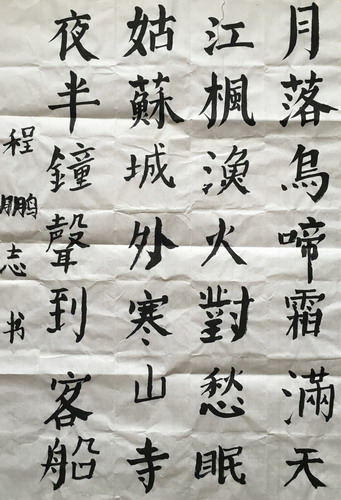 月落烏啼霜滿天
江楓漁火對愁眠
姑蘇城外寒山寺
夜半鐘聲到客船
程鹏志书